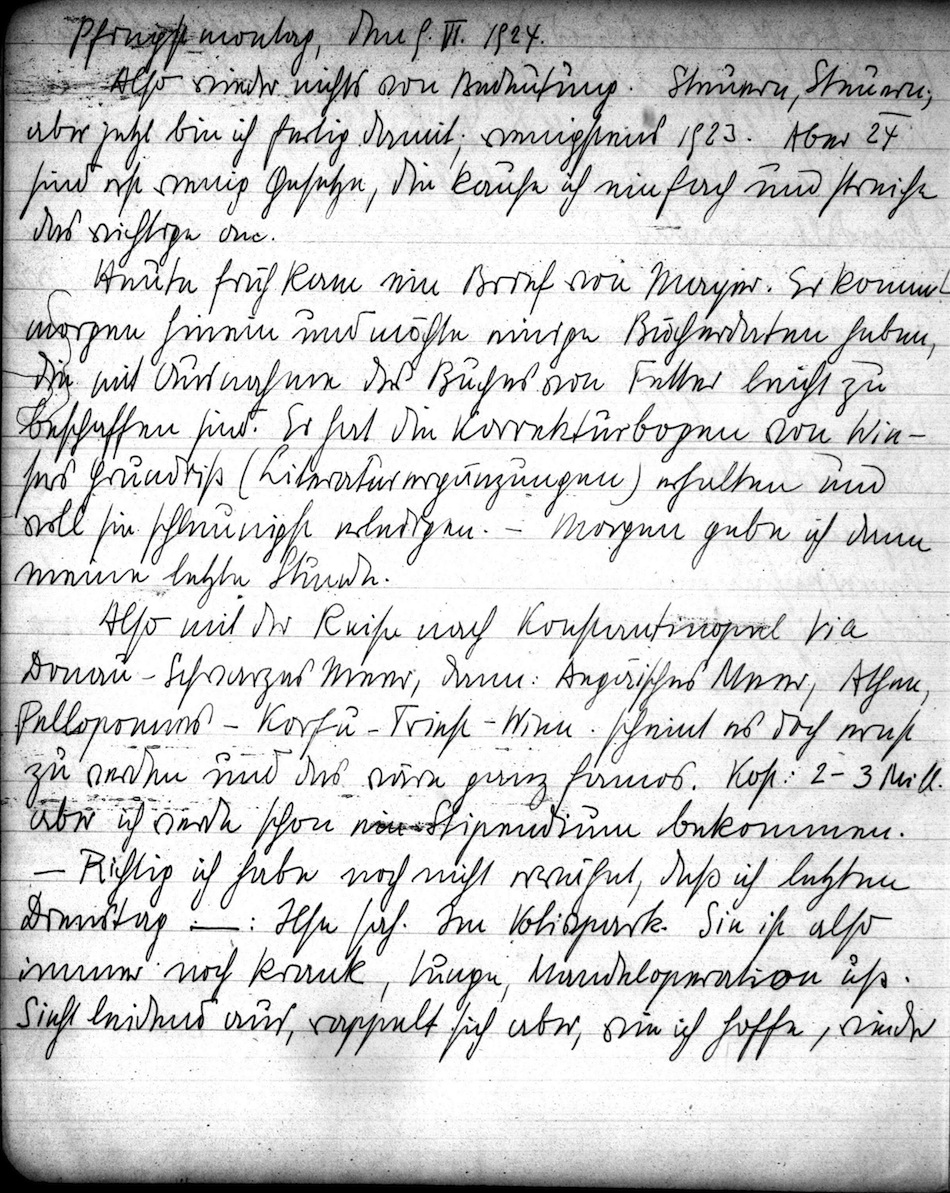 Pfingstmontag, den 9. VI. 1924.
Also wieder nichts von Bedeutung. Steuern, Steuern,
aber jetzt bin ich fertig damit, wenigstens 1923. Aber 24
sind erst wenig Gesetze, die kaufe ich einfach und streiche
das richtige an.
Heute früh kam ein Brief von Mayer. Er kommt
morgen hinein und möchte einige Bücherdaten haben,
die mit Ausnahme des Buches von Fetter leicht zu
beschaffen sind. Er hat die Korrekturbogen von Wie-
sers Grundriß (Literaturergänzungen) erhalten und
soll sie schleunigst erledigen. – Morgen gebe ich dann
meine letzte Stunde.
Also mit der Reise nach Konstantinopel via
Donau – Schwarzes Meer, dann: Aegäisches Meer, Athen,
Pelloponnes – Korfu – Triest – Wien scheint es doch ernst
zu werden und das wäre ganz famos. Kost: 2 – 3 Mill.
aber ich werde schon ein Stipendium bekommen.
— Richtig ich habe noch nicht erwähnt, daß ich letzten
Dienstag —: Ilse sah. Im Volkspark. Sie ist also
immer noch krank, Lunge, Mandeloperation usw.
Sieht leidend aus, rappelt sich aber, wie ich hoffe, wieder